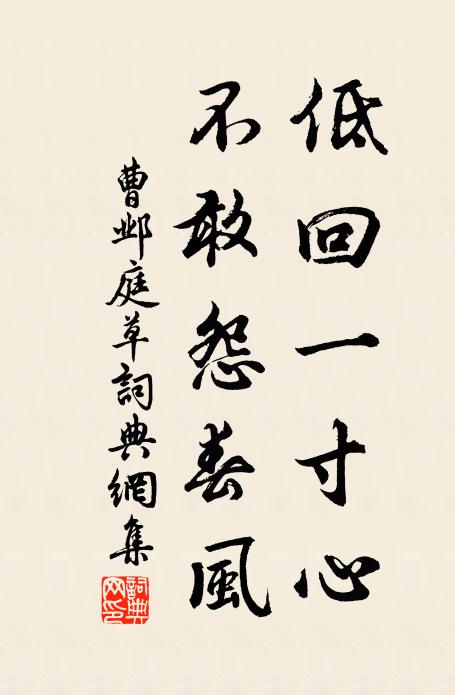 低回一寸心
不敢怨春風
曹邺庭草詞典網集
詞典網印